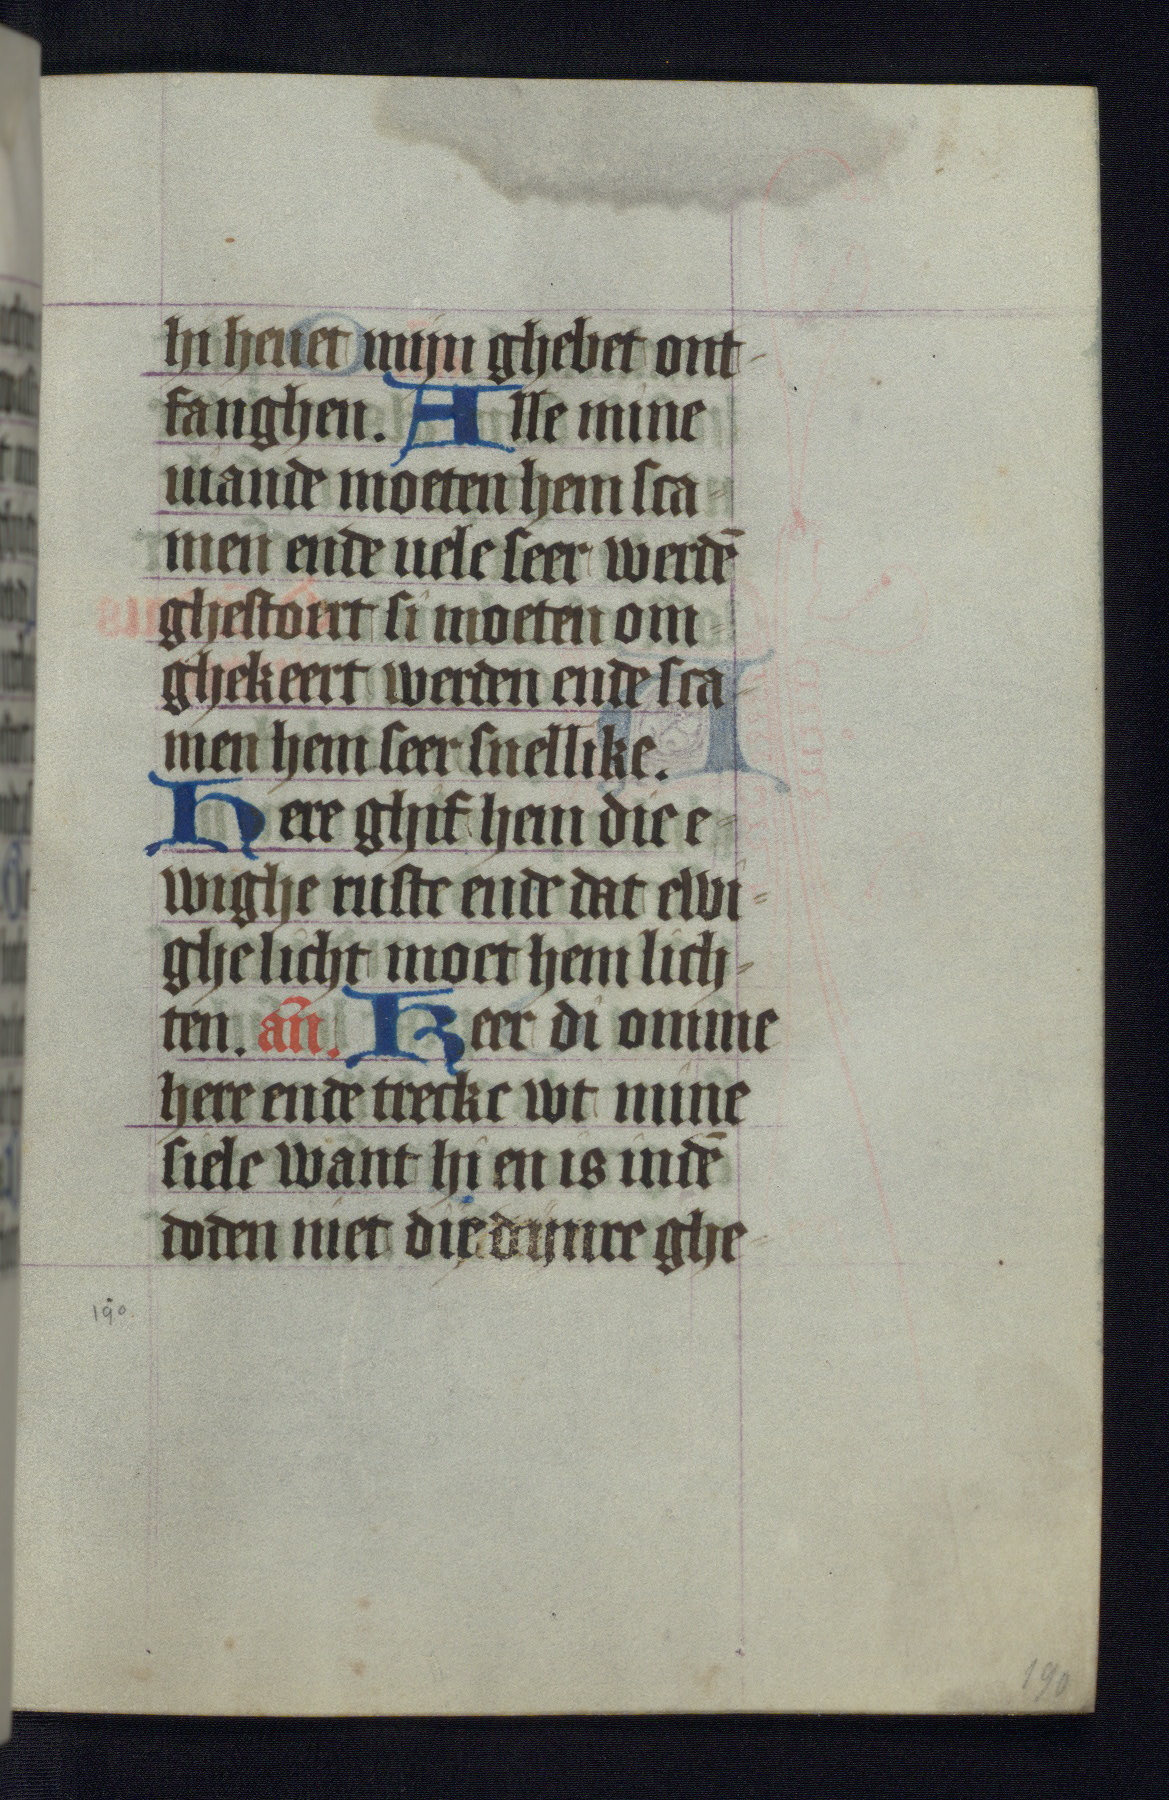 hi heuet mijn ghebet ont-
fanghen. Alle mine
uiande moeten hem sca-
men ende uele seer werdē
ghestoert si moeten om-
ghekeert werden ende sca-
men hem seer snellike.
Here ghif hem die e-
wighe ruste ende dat ewi-
ghe licht moet hem lich-
ten. an̄. Keer di omme
here ende trecke wt mine
siele want hi en is indē
doden niet die dijnre ghe-
190.
190